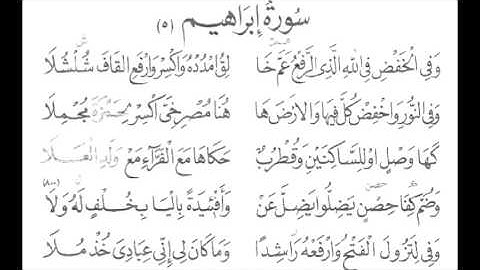 سُورَةُ إِبْرَاهِيم (٥)
وَفِي الْخَفْضِ فِي اللهِ الَّذِي الرَّفْعُ عَمَّ خَا لِقُ امْدُدْهُ وَاكْسِرْ وَارْفَعِ الْقَافَ شُلْشُلَا
وَفِي النُّورِ وَاخْفِضْ كُلَّ فِيهَا وَالارْضَ هَا هُنَا مُصْرِخِيَّ اكْسِرْ لِحَمْزَةَ مُجْمِلَا
كَهَا وَصْلٍ اوْ لِلسَّاكِنَيْنِ وَقُطْرُبٌ حَكَاهَا مَعَ الْفَرَّاءِ مَعْ وَلَدِ الْعَلَا
وَضُمَّ كِفَا حِصْنٍ يَضِلُّوا يَضِلَّ عَنْ وَأَفْئِيدَةً بِالْيَا بِخُلْفٍ لَهُ وَلَا (٨٠٠)
وَفِي لِتَزُولَ الْفَتْحُ وَارْفَعْهُ رَاشِدًا وَمَا كَانَ لِي إِنِّي عِبَادِيَ خُذْ مُلَا